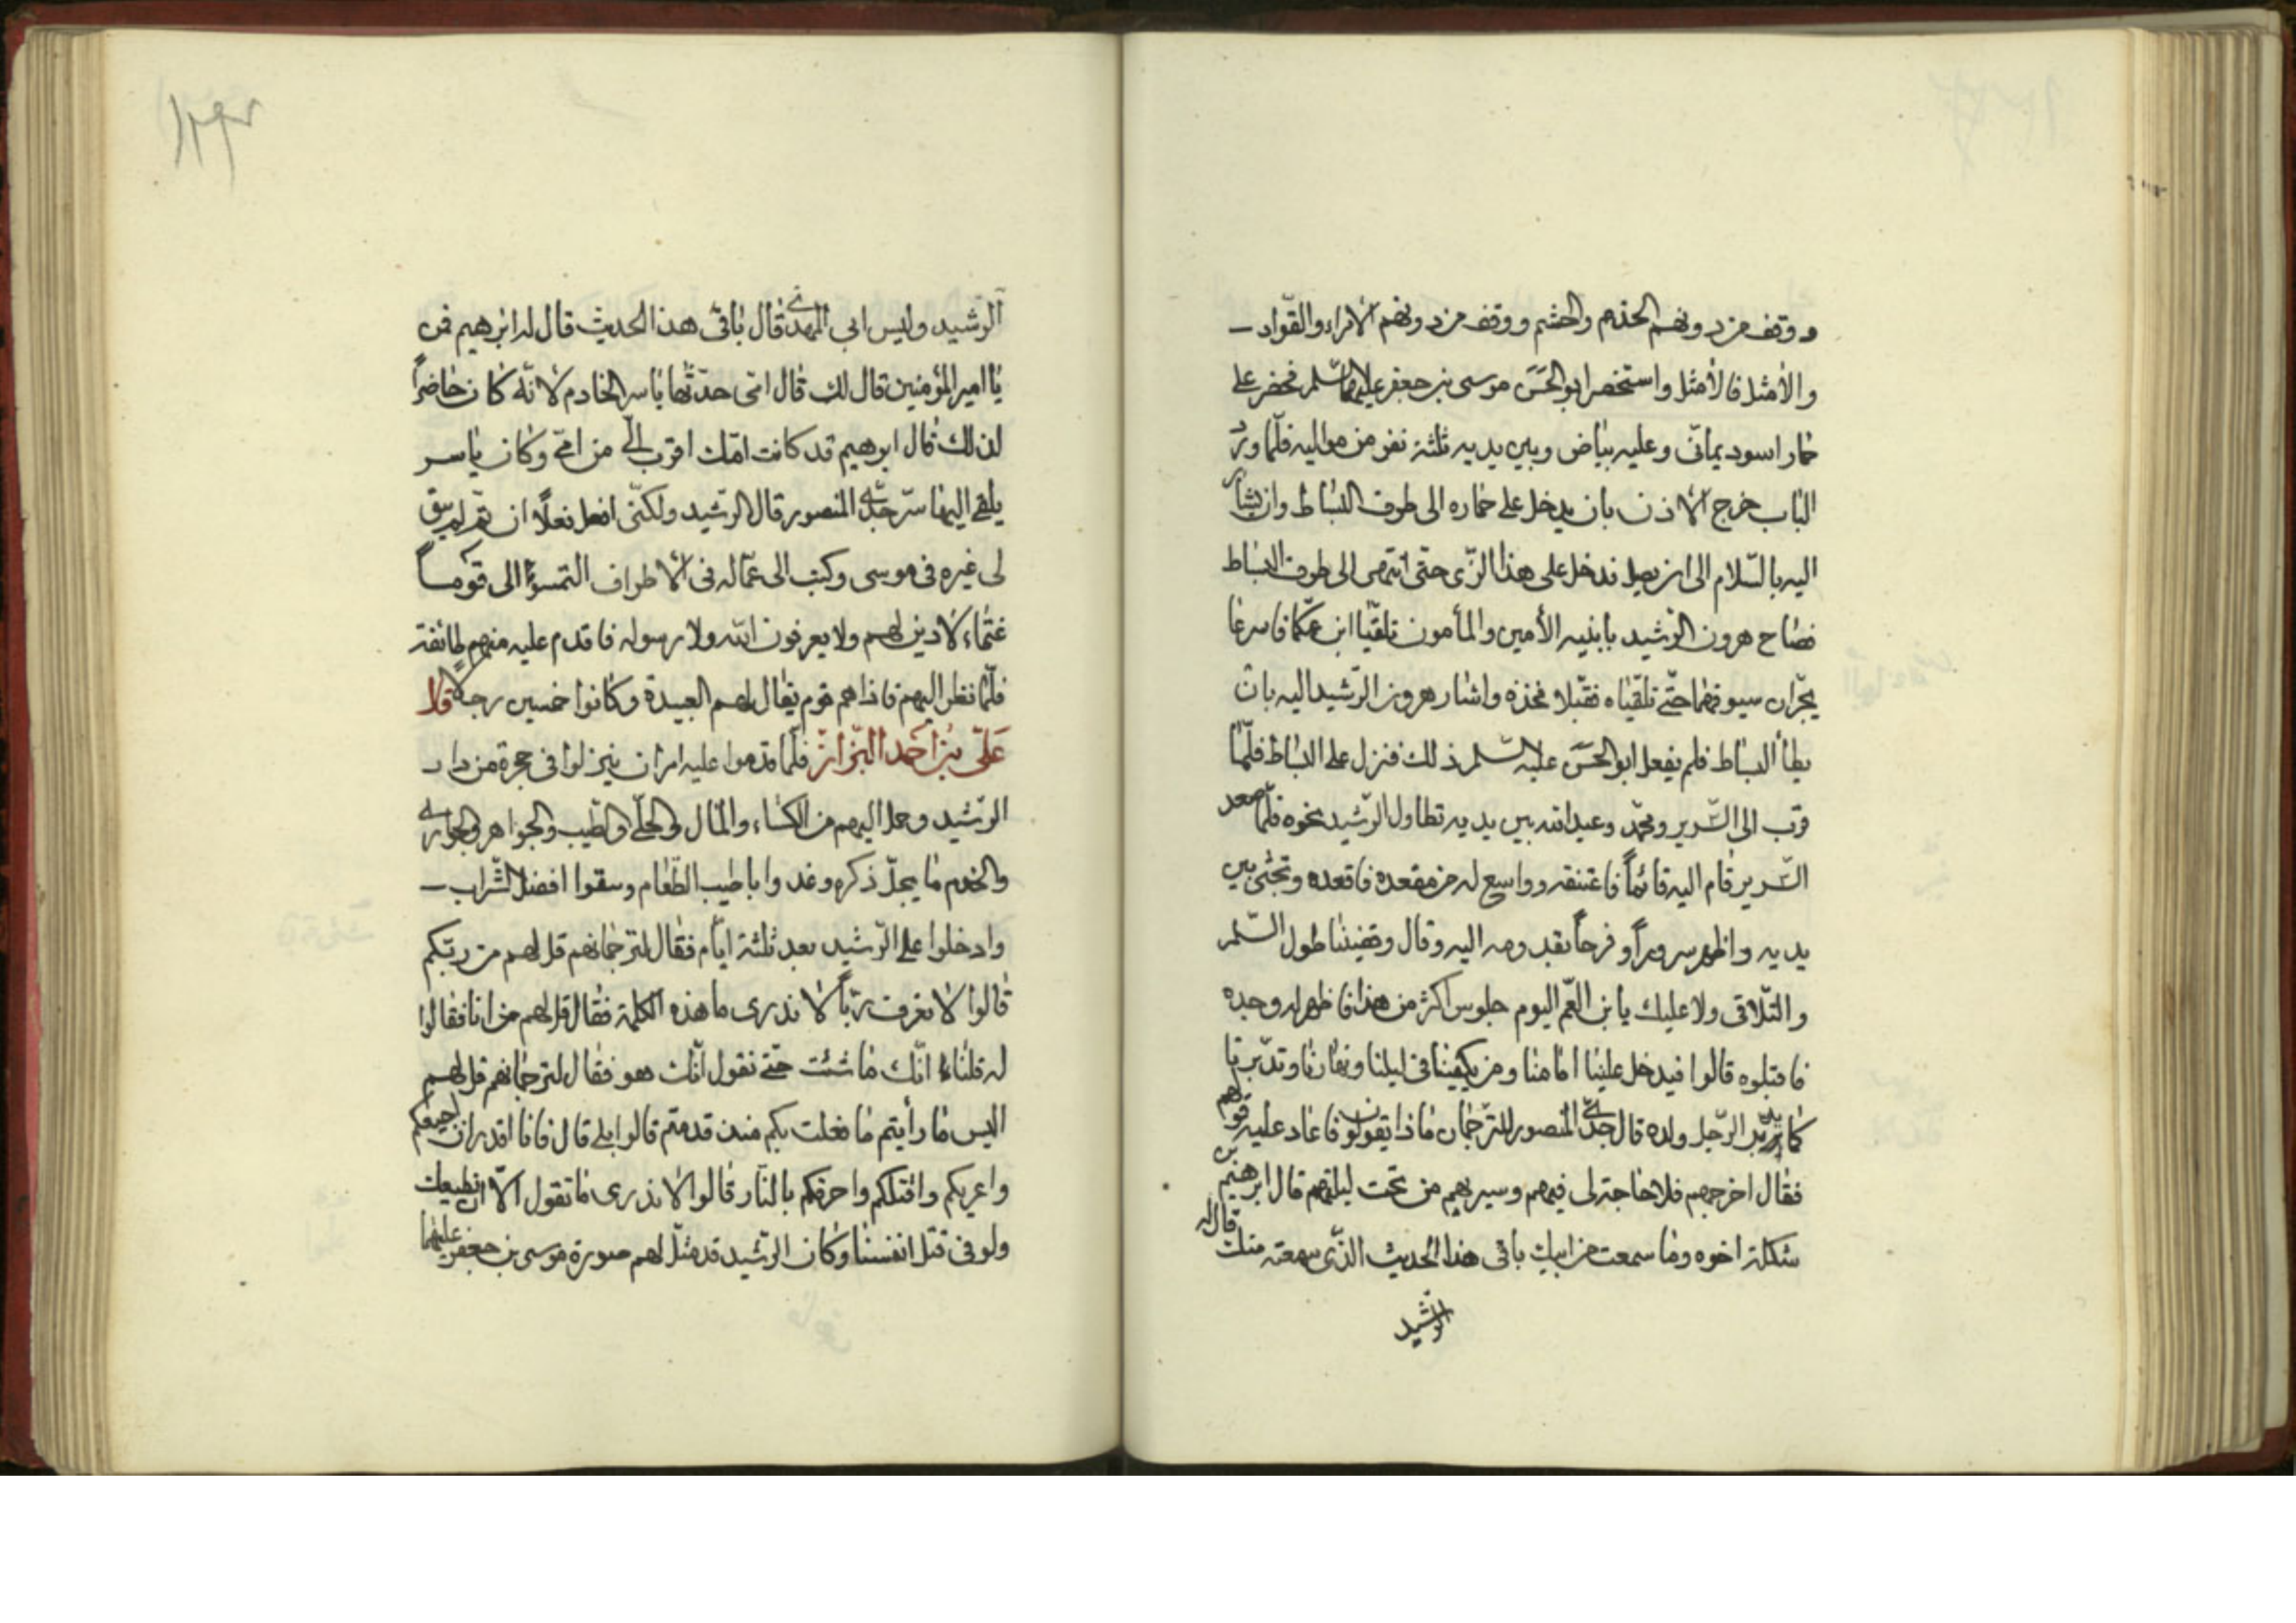 ووقف من دونهم الخدم والحشم ووقف من دونهم الامراء والقوّاد
والأمثل فالأمثل واستحضر ابو الحسن موسى بن جعفر عليهما السّلم فحضر على
حمار اسود يمانى وعليه بياض وبين يديه ثلثة نفر من مواليه فلمّا ورد
الباب خرج الاذن بان يدخل على حماره الى طرف البساط وان يشار
اليه بالسّلام الى ان يصل فدخل على هذا الزّى حتى انتهى الى طرف البساط
فصاح هرون الرّشيد بابنيه الأمين والمأمون تلقّيا ابن عمّكما فاسرعا
يجرّان سيوفهما حتّى تلقّياه فقبّلا فخذه واشار هرون الرّشيد اليه بان
يطأ البساط فلم يفعل ابو الحسن عليه السّلم ذلك فنزل على البساط فلمّا
قرب الى السّرير ومحمّد وعبد الله بين يديه تطاول الرّشيد نحوه فلمّا صعد
السّرير قام اليه قائماً فاعتنقه وواسع له من مقعده فاقعده وتجثى بين
يديه واظهر سروراً وفرحاً بقدومه اليه وقال وقضيننا طول السّلم
والتّلاقى ولا عليك يابن العّم اليوم جلوس اكثر من هذا فاظهر له وجده
فاقبلوه قالوا فيدخل علينا امامنا ومن يكفينا فى ليلنا ونهارنا وتدبّرنا
كما يدبّر الرّجل ولده قال جدّى المنصور للترّجمان ماذا يقولون فاعاد عليه قولهم
فقال اخرجهم فلا حاجة لى فيهم وسير بهم من تحت ليلتهم قال ابرهيم بن
شكلة اخوه وما سمعت من ابيك باقى هذا الحديث الذّى سمعته منك قال له
الرّشيد
الرّشيد وليس ابى المهدى قال باقى هذا الحديث قال له ابرهيم فمن
يا امير المؤمنين قال لك قال امّى حدّثها ياسر الخادم لانّه كان حاضراً
لذلك قال ابرهيم قد كانت امّك اقرب الىّ من امّى وكان ياسر
يلقى اليها سرّ جدّى المنصور قال الرّشيد ولكنّى افعل فعلاً ان تمّ لم يبق
لى غيره فى موسى وكتب الى عمّاله فى الاطراف التمسوا الى قوماً
غتماء لا دين لهم ولا يعرفون الله ولا رسوله فاقدم عليه منهم طائفة
فلمّا نظر اليهم فاذا هم قوم يقال لهم العبدة وكانوا خمسين رجلاً قال
علىّ بن احمد البزّاز فلمّا قدموا عليه امر ان ينزلوا فى حجرة من دار
الرّشيد وحمل اليهم من الكساء والمال والحلّى والطّيب والجواهر والجوارى
والخدم ما يجلّ ذكره وغدوا باطيب الطّعام وسقوا افضل الشّراب
وادخلوا على الرّشيد بعد ثلثة ايّام فقال لترجمانهم قل لهم من ربّكم
قالوا لا نعرف ربّاً لا ندرى ما هذه الكلمة فقال قل لهم من انا فقالوا
له قلنا انّك ما شئت حتّى نقول انّك هو فقال لترجمانهم قل لهم
اليس ما رأيتم ما فعلت بكم منذ قدمتم قالوا بلى قال فانا اقدر ان اجيعكم
واعريكم واقتلكم واحرقكم بالنّار قالوا لا ندرى ما تقول الّا ان نطيعك
ولو فى قتل انفسنا وكان الرّشيد قد مثّل لهم صورة موسى بن جعفر عليهما